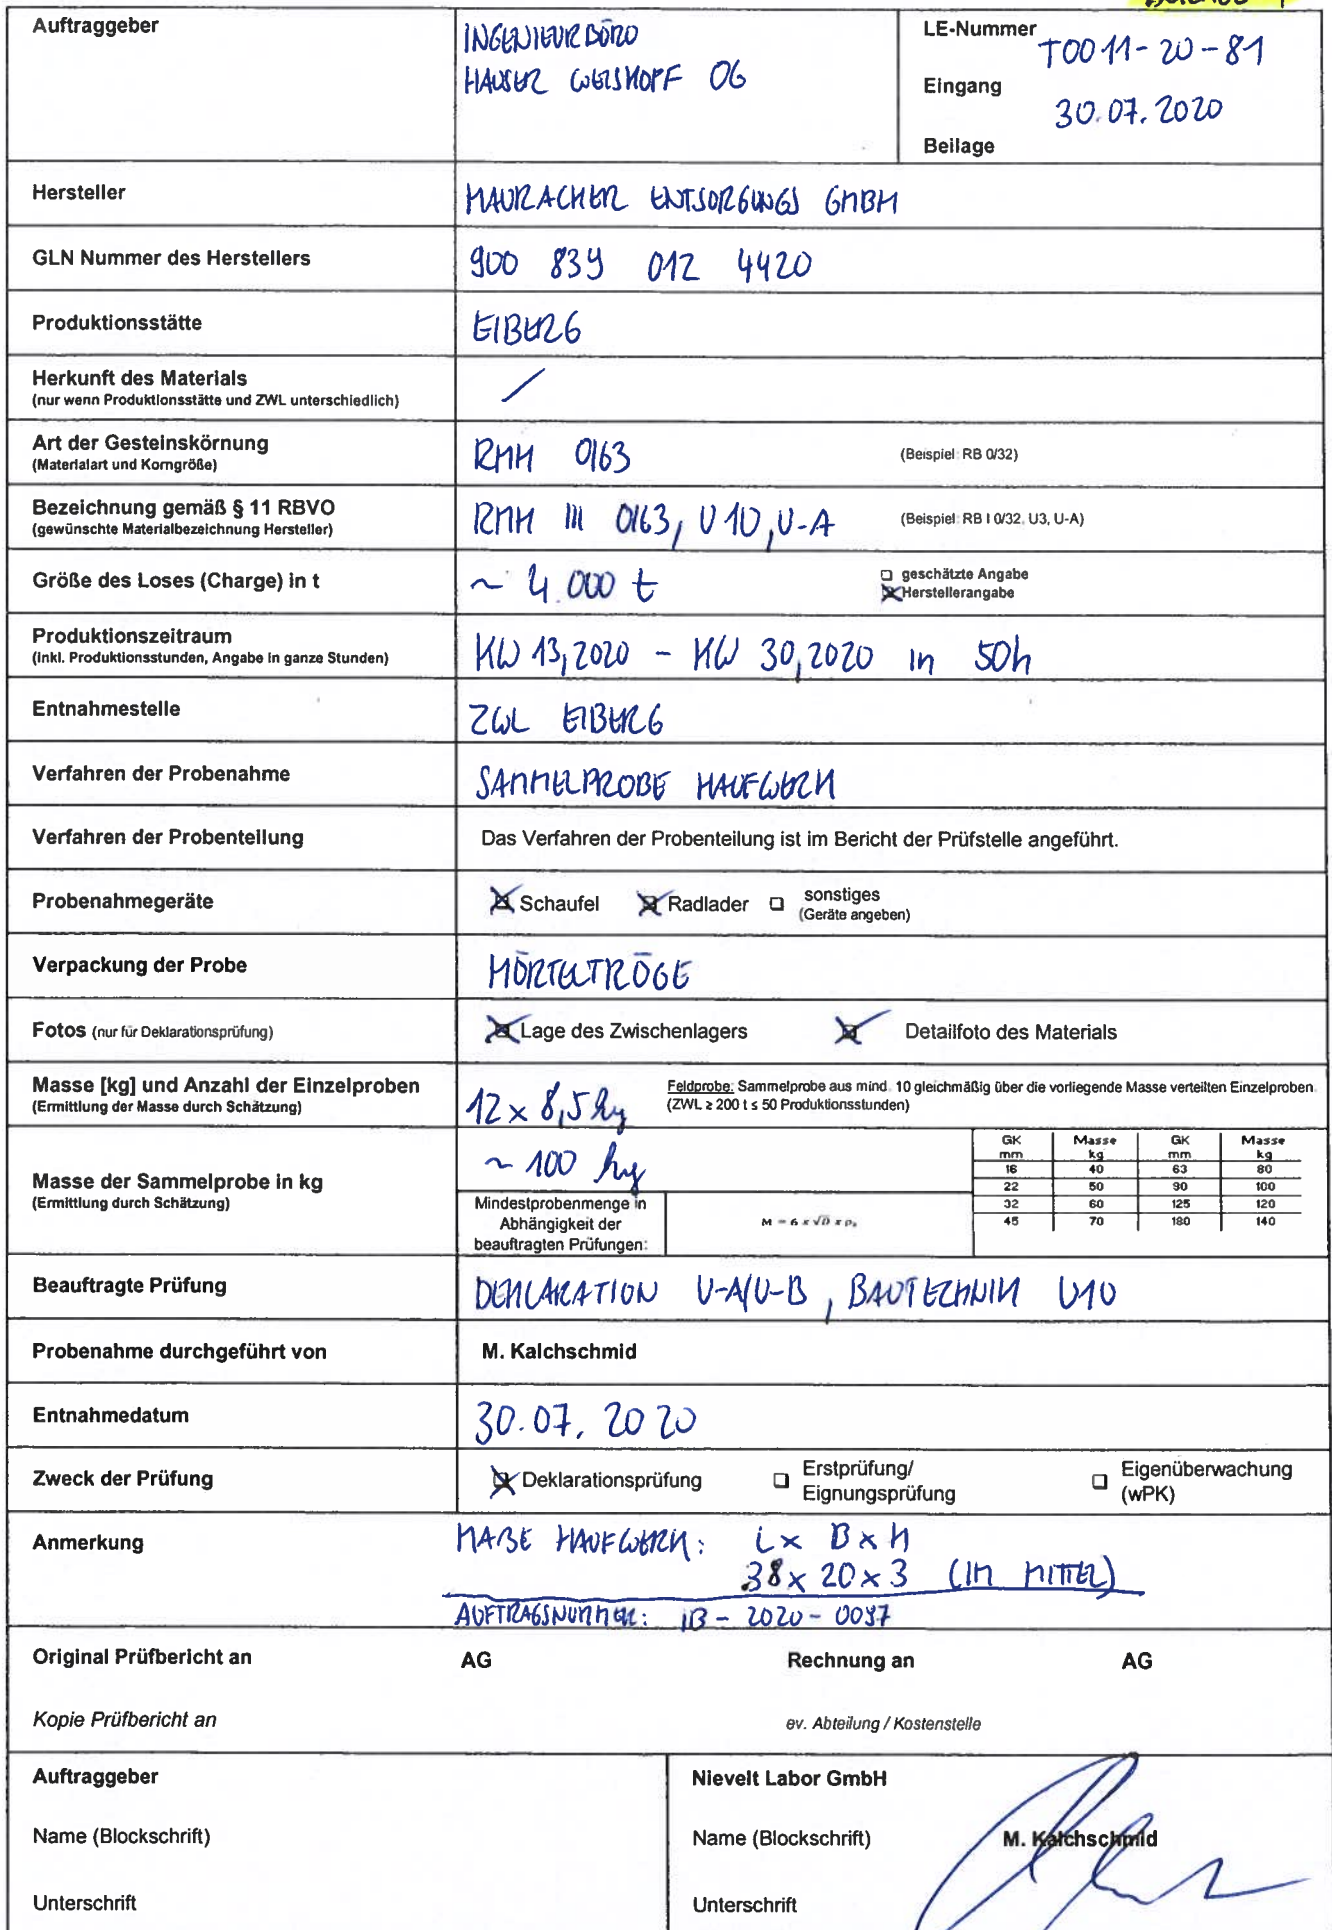 Auftraggeber
INGENIEURBÜRO
HAUSER WEISKOPF OG
LE-Nummer T0011-20-81
Eingang 30.07.2020
Beilage
Hersteller MAURACHER ENTSORGUNGS GMBH
GLN Nummer des Herstellers 900 839 012 4420
Produktionsstätte EIBERG
Herkunft des Materials /
(nur wenn Produktionsstätte und ZWL unterschiedlich)
Art der Gesteinskörnung RMH 0/63 (Beispiel: RB 0/32)
(Materialart und Korngröße)
Bezeichnung gemäß § 11 RBVO RMH III 0/63, U10, U-A (Beispiel: RB I 0/32, U3, U-A)
(gewünschte Materialbezeichnung Hersteller)
Größe des Loses (Charge) in t ~ 4.000 t
geschätzte Angabe
Herstellerangabe
Produktionszeitraum KW 13,2020 - KW 30,2020 in 50h
(inkl. Produktionsstunden, Angabe in ganze Stunden)
Entnahmestelle ZWL EIBERG
Verfahren der Probenahme SAMMELPROBE HAUFWERK
Verfahren der Probenteilung Das Verfahren der Probenteilung ist im Bericht der Prüfstelle angeführt.
Probenahmegeräte Schaufel Radlader sonstiges
(Geräte angeben)
Verpackung der Probe MÖRTELTRÖGE
Fotos (nur für Deklarationsprüfung) Lage des Zwischenlagers Detailfoto des Materials
Masse [kg] und Anzahl der Einzelproben 12 x 8,5 kg
(Ermittlung der Masse durch Schätzung)
Feldprobe: Sammelprobe aus mind. 10 gleichmäßig über die vorliegende Masse verteilten Einzelproben.
(ZWL ≥ 200 t ≤ 50 Produktionsstunden)
Masse der Sammelprobe in kg ~ 100 kg
(Ermittlung durch Schätzung)
Mindestprobenmenge in
Abhängigkeit der
beauftragten Prüfungen:
M = 6 x √D x ρ
GK mm Masse kg GK mm Masse kg
16 40 63 80
22 50 90 100
32 60 125 120
45 70 180 140
Beauftragte Prüfung DEKLARATION U-A/U-B, BAUTECHNIK U10
Probenahme durchgeführt von M. Kalchschmid
Entnahmedatum 30.07.2020
Zweck der Prüfung Deklarationsprüfung Erstprüfung/ Eigenüberwachung
Eignungsprüfung (wPK)
Anmerkung MAßE HAUFWERK: L x B x H
38 x 20 x 3 (IM MITTEL)
AUFTRAGSNUMMER: IB - 2020 - 0097
Original Prüfbericht an AG Rechnung an AG
Kopie Prüfbericht an ev. Abteilung / Kostenstelle
Auftraggeber Nievelt Labor GmbH
Name (Blockschrift) Name (Blockschrift) M. Kalchschmid
Unterschrift Unterschrift